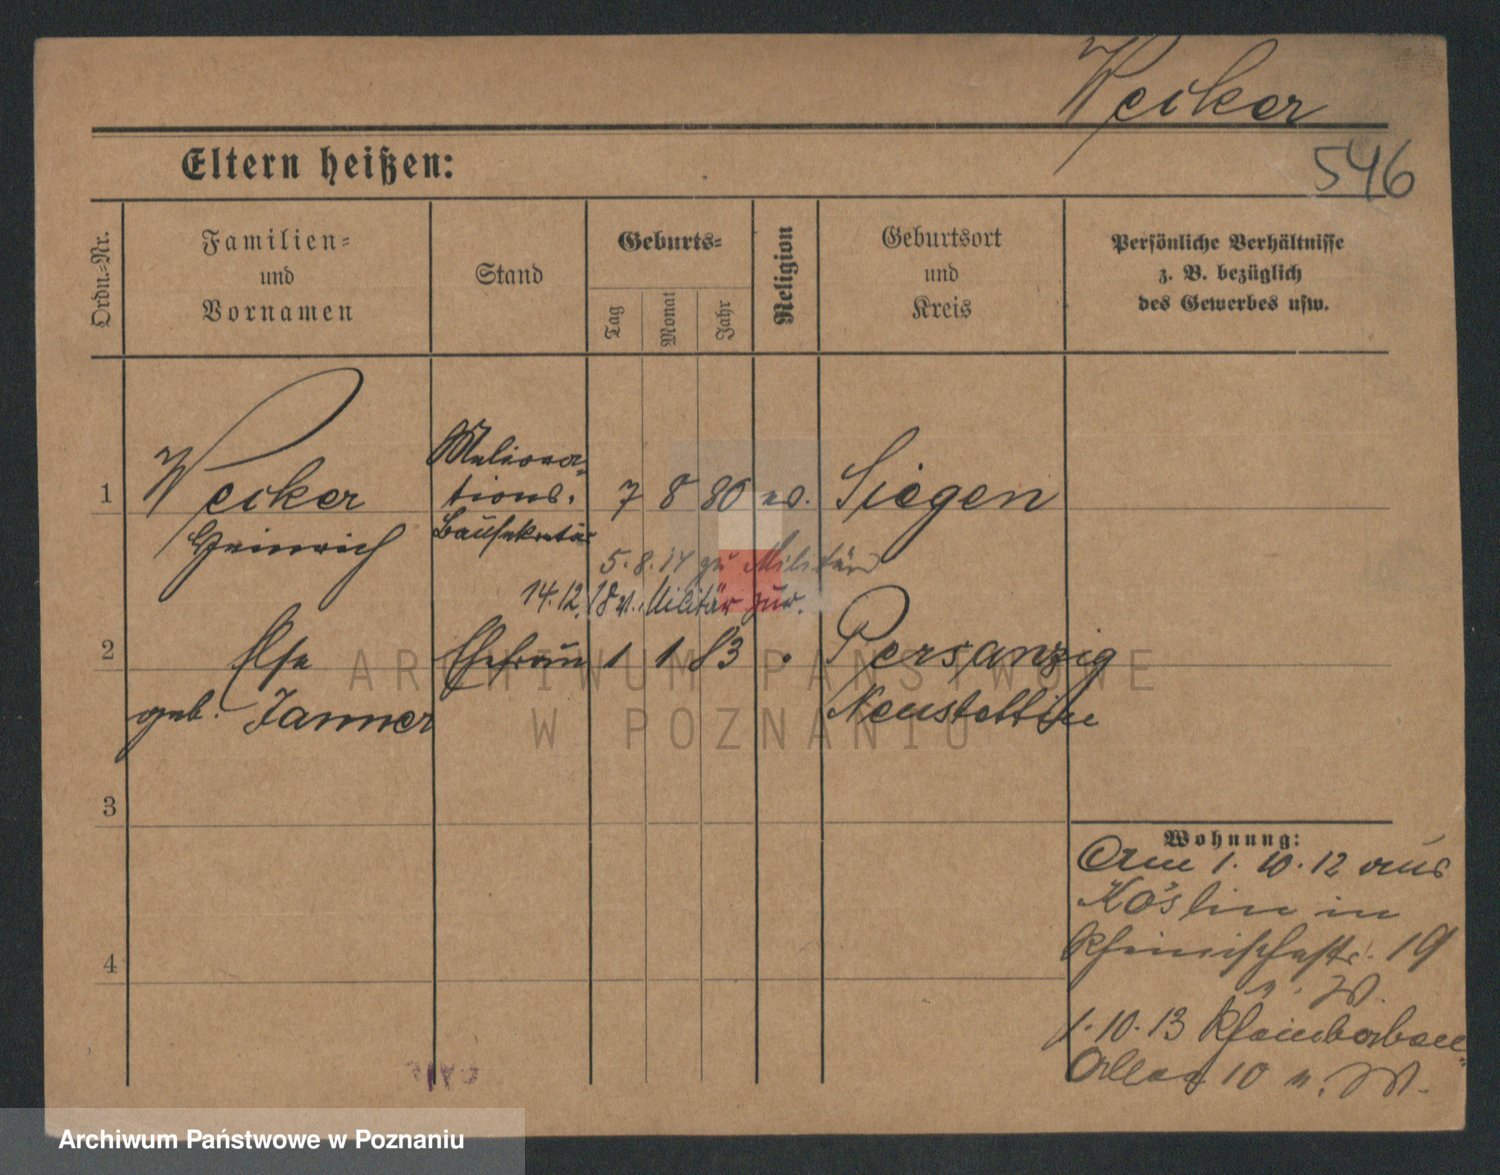 Weiker
546
Eltern heißen:
Ordn.-Nr.
Familien-
und
Vornamen
Stand
Geburts-
Tag
Monat
Jahr
Religion
Geburtsort
und
Kreis
Persönliche Verhältnisse
z. B. bezüglich
des Gewerbes usw.
1
Weiker
Heinrich
Meliora-
tions-
Bausekretär
7 8 80 ev. Siegen
5.8.14 zu Militär
14.12.18 v. Militär zur.
2
Else
geb. Janner
Ehefrau 1 1 83 Persanzig
Neustettin
3
4
Wohnung:
Am 1.10.12 aus
Köslin in
19
n. W.
1.10.13
Allee 10 n. W.
ARCHIWUM PAŃSTWOWE
W POZNANIU
Archiwum Państwowe w Poznaniu